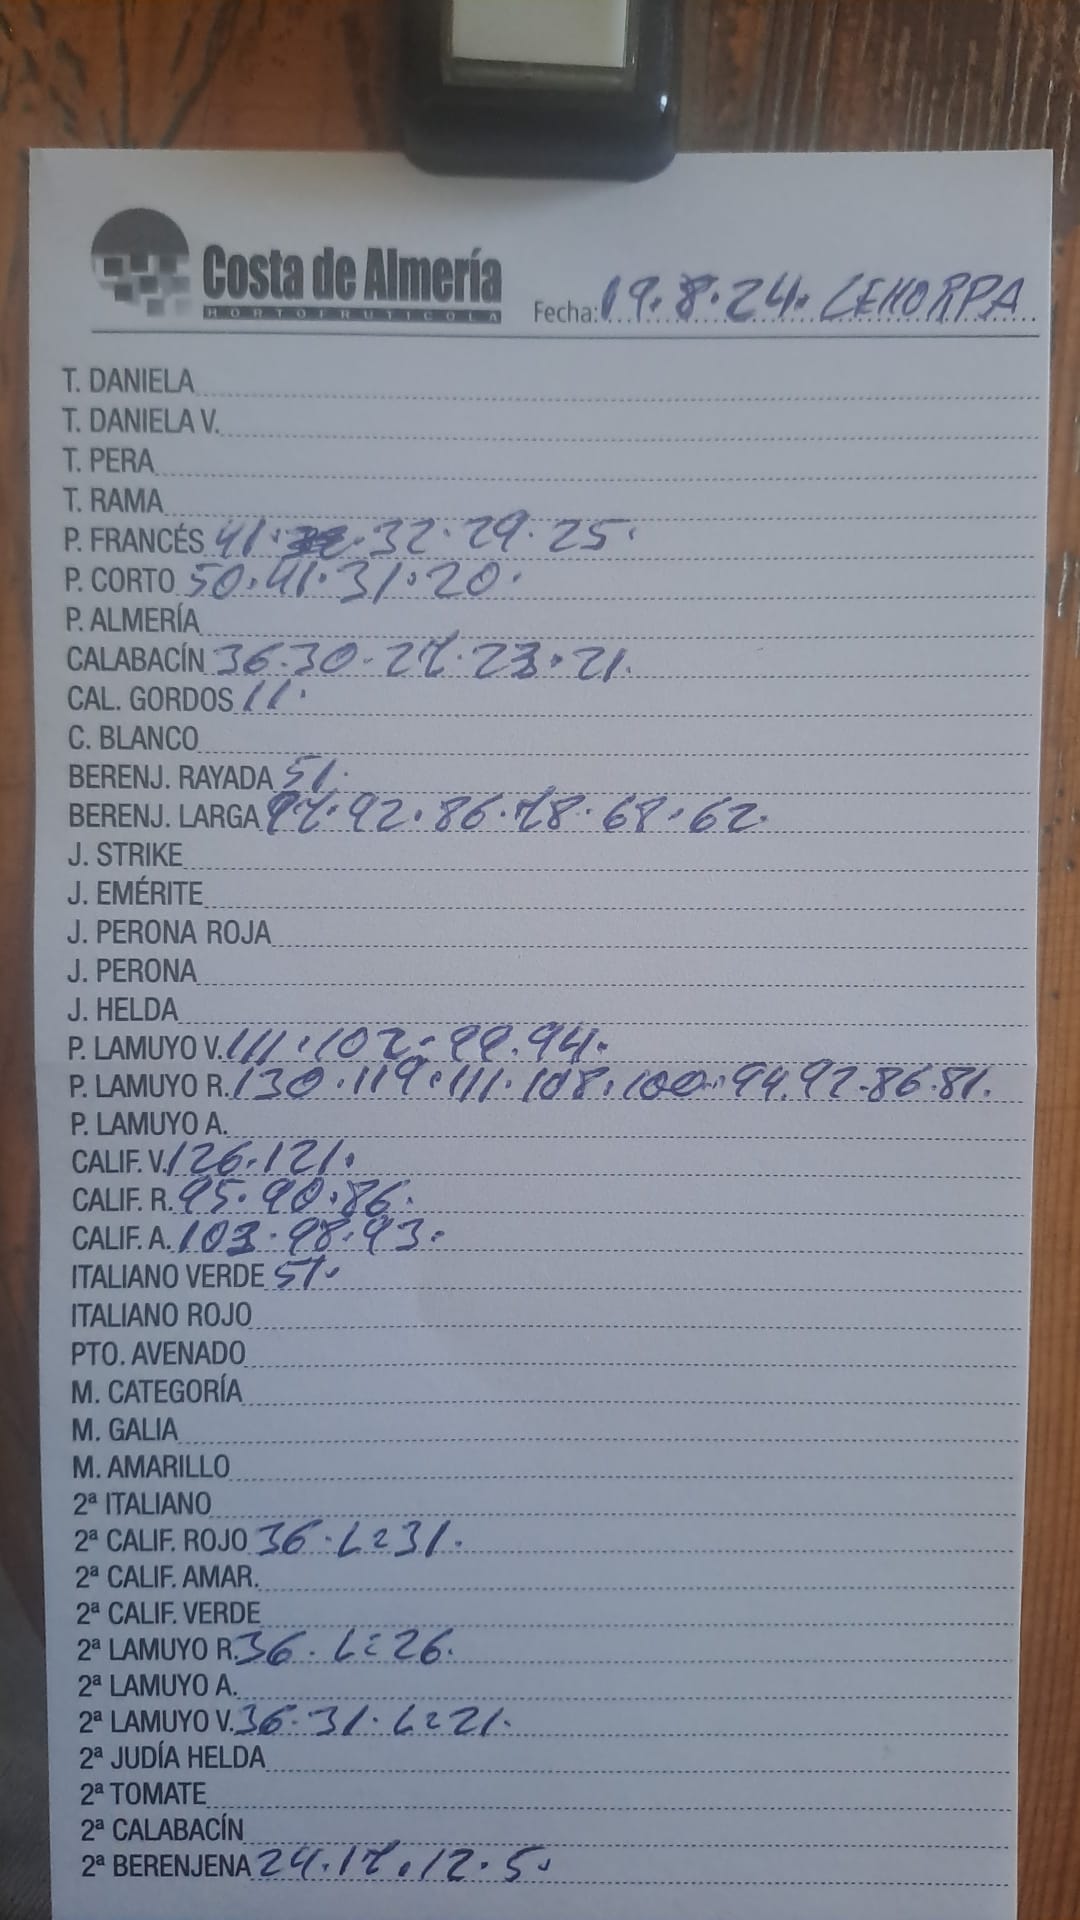 Costa de Almería
HORTOFRUTICOLA
Fecha: 19.8.24. CEHORPA
T. DANIELA
T. DANIELA V.
T. PERA
T. RAMA
P. FRANCÉS 41. 32. 29. 25.
P. CORTO 50. 41. 31. 20.
P. ALMERÍA
CALABACÍN 36. 30. 27. 23. 21.
CAL. GORDOS 11.
C. BLANCO
BERENJ. RAYADA 51.
BERENJ. LARGA 97. 92. 86. 78. 68. 62.
J. STRIKE
J. EMÉRITE
J. PERONA ROJA
J. PERONA
J. HELDA
P. LAMUYO V. 111. 102. 99. 94.
P. LAMUYO R. 130. 119. 111. 108. 100. 94. 92. 86. 81.
P. LAMUYO A.
CALIF. V. 126. 121.
CALIF. R. 95. 90. 86.
CALIF. A. 103. 98. 93.
ITALIANO VERDE 51.
ITALIANO ROJO
PTO. AVENADO
M. CATEGORÍA
M. GALIA
M. AMARILLO
2ª ITALIANO
2ª CALIF. ROJO 36. L=31.
2ª CALIF. AMAR.
2ª CALIF. VERDE
2ª LAMUYO R. 36. L=26.
2ª LAMUYO A.
2ª LAMUYO V. 36. 31. L=21.
2ª JUDÍA HELDA
2ª TOMATE
2ª CALABACÍN
2ª BERENJENA 24. 17. 12. 5.